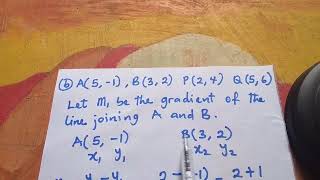 (b) A(5, -1), B(3, 2) P(2, 4) Q(5, 6)
Let m₁ be the gradient of the
line joining A and B.
A(5, -1) B(3, 2)
x₁ y₁ x₂ y₂